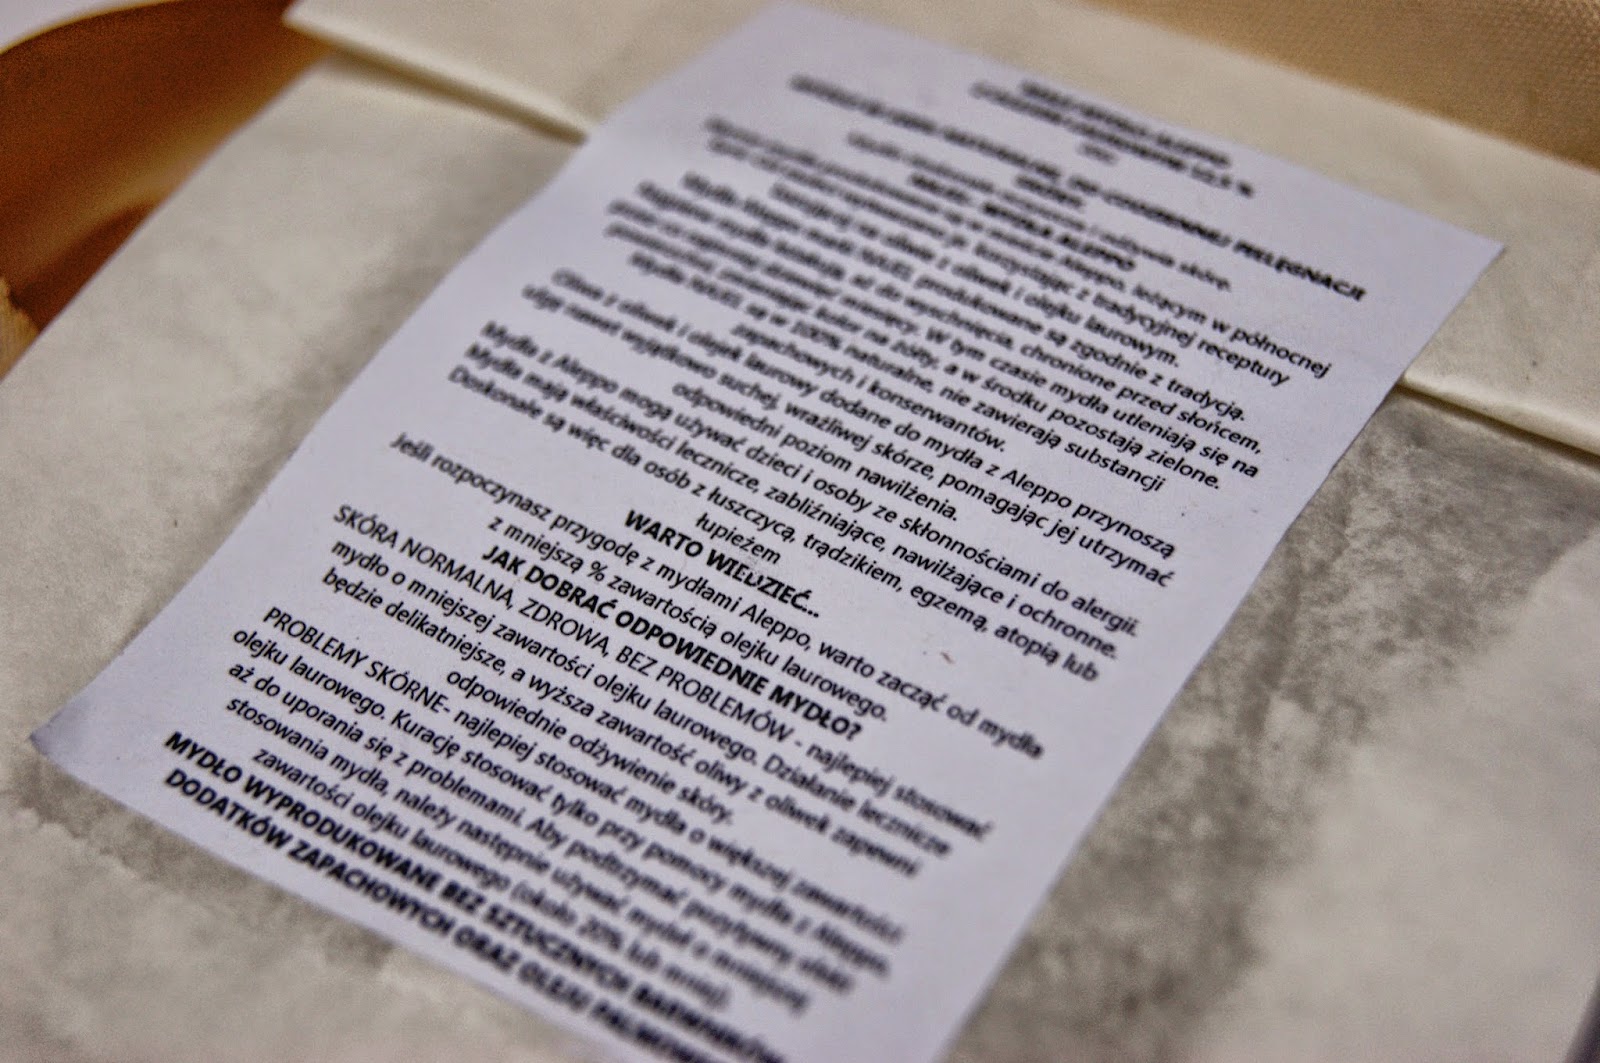 CODZIENNEJ PIELĘGNACJI
MYDŁA ALEPPO
w mieście Aleppo, leżącym w północnej
korzystając z tradycyjnej receptury
bazując na oliwie z oliwek i olejku laurowym.
Mydła Aleppo marki produkowane są zgodnie z tradycją.
aż do wyschnięcia, chronione przed słońcem,
przez co najmniej dziewięć miesięcy. W tym czasie mydła utleniają się na
powierzchni, kolor na żółty, a w środku pozostają zielone.
Mydła są w 100% naturalne, nie zawierają substancji
zapachowych i konserwantów.
Oliwa z oliwek i olejek laurowy dodane do mydła z Aleppo przynoszą
ulgę nawet wyjątkowo suchej, wrażliwej skórze, pomagając jej utrzymać
odpowiedni poziom nawilżenia.
Mydła z Aleppo mogą używać dzieci i osoby ze skłonnościami do alergii.
Mydła mają właściwości lecznicze, zabliźniające, nawilżające i ochronne.
Doskonałe są więc dla osób z łuszczycą, trądzikiem, egzemą, atopią lub
łupieżem
WARTO WIEDZIEĆ...
Jeśli rozpoczynasz przygodę z mydłami Aleppo, warto zacząć od mydła
z mniejszą % zawartością olejku laurowego.
JAK DOBRAĆ ODPOWIEDNIE MYDŁO?
SKÓRA NORMALNA, ZDROWA, BEZ PROBLEMÓW - najlepiej stosować
mydło o mniejszej zawartości olejku laurowego. Działanie lecznicze
będzie delikatniejsze, a wyższa zawartość oliwy z oliwek zapewni
odpowiednie odżywienie skóry.
PROBLEMY SKÓRNE- najlepiej stosować mydła o większej zawartości
olejku laurowego. Kurację stosować tylko przy pomocy mydła z Aleppo,
aż do uporania się z problemami. Aby podtrzymać pozytywny efekt
stosowania mydła, należy następnie używać mydeł o mniejszej
zawartości olejku laurowego (około 20% lub mniej).
MYDŁO WYPRODUKOWANE BEZ SZTUCZNYCH BARWNIKÓW
DODATKÓW ZAPACHOWYCH ORAZ OLEJU